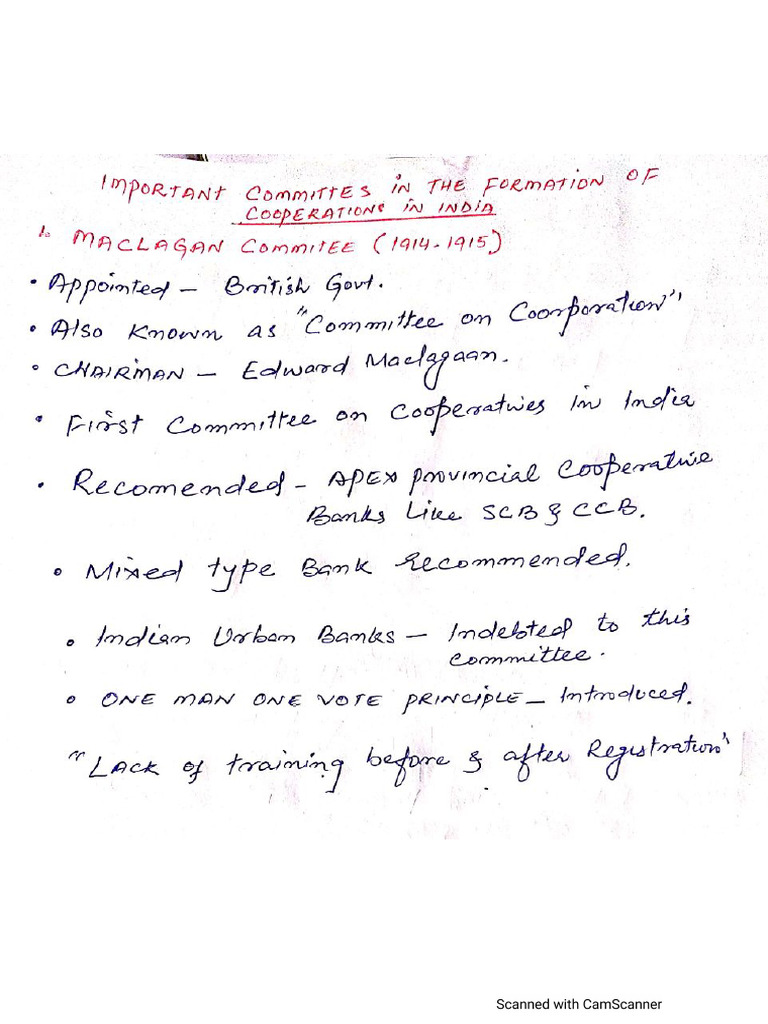 IMPORTANT COMMITTES IN THE FORMATION OF
COOPERATIONS IN INDIA
1. MACLAGAN COMMITEE (1914-1915)
• Appointed – British Govt.
• Also Known as "Committee on Coorporation"
• CHAIRMAN – Edward Maclagaan.
• First Committee on Cooperatives in India
• Recomended – APEX provincial Cooperative
Banks Like SCB & CCB.
• Mixed type Bank recommended.
• Indian Urban Banks – Indebted to this
committee.
• ONE MAN ONE VOTE PRINCIPLE – Introduced.
"LACK of training before & after Registration"
Scanned with CamScanner